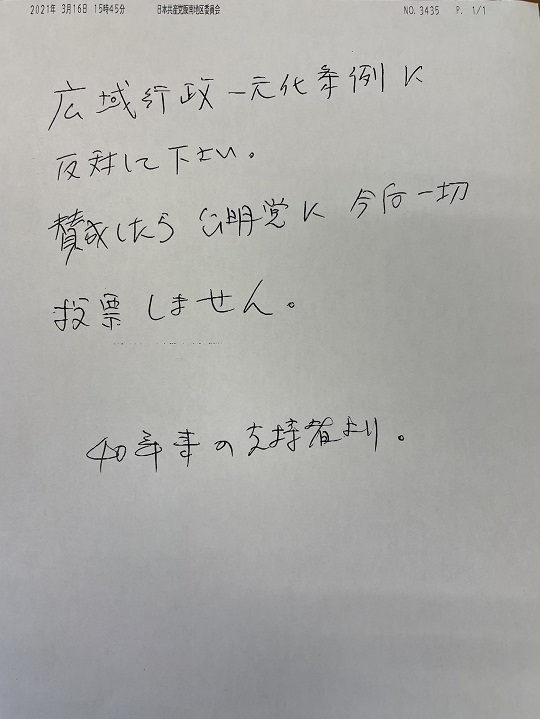 2021年 3月16日 15時45分 日本共産党阪南地区委員会 NO. 3435 P. 1/1
広域行政一元化条例に
反対して下さい。
賛成したら 公明党に 今后一切
投票しません。
40年来の支持者より。